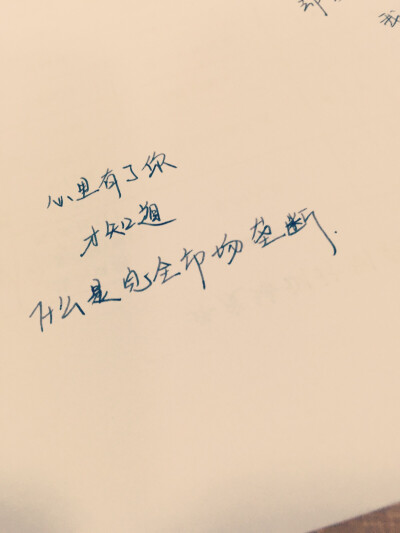 心里有了你
才知道
什么是完全市场垄断.